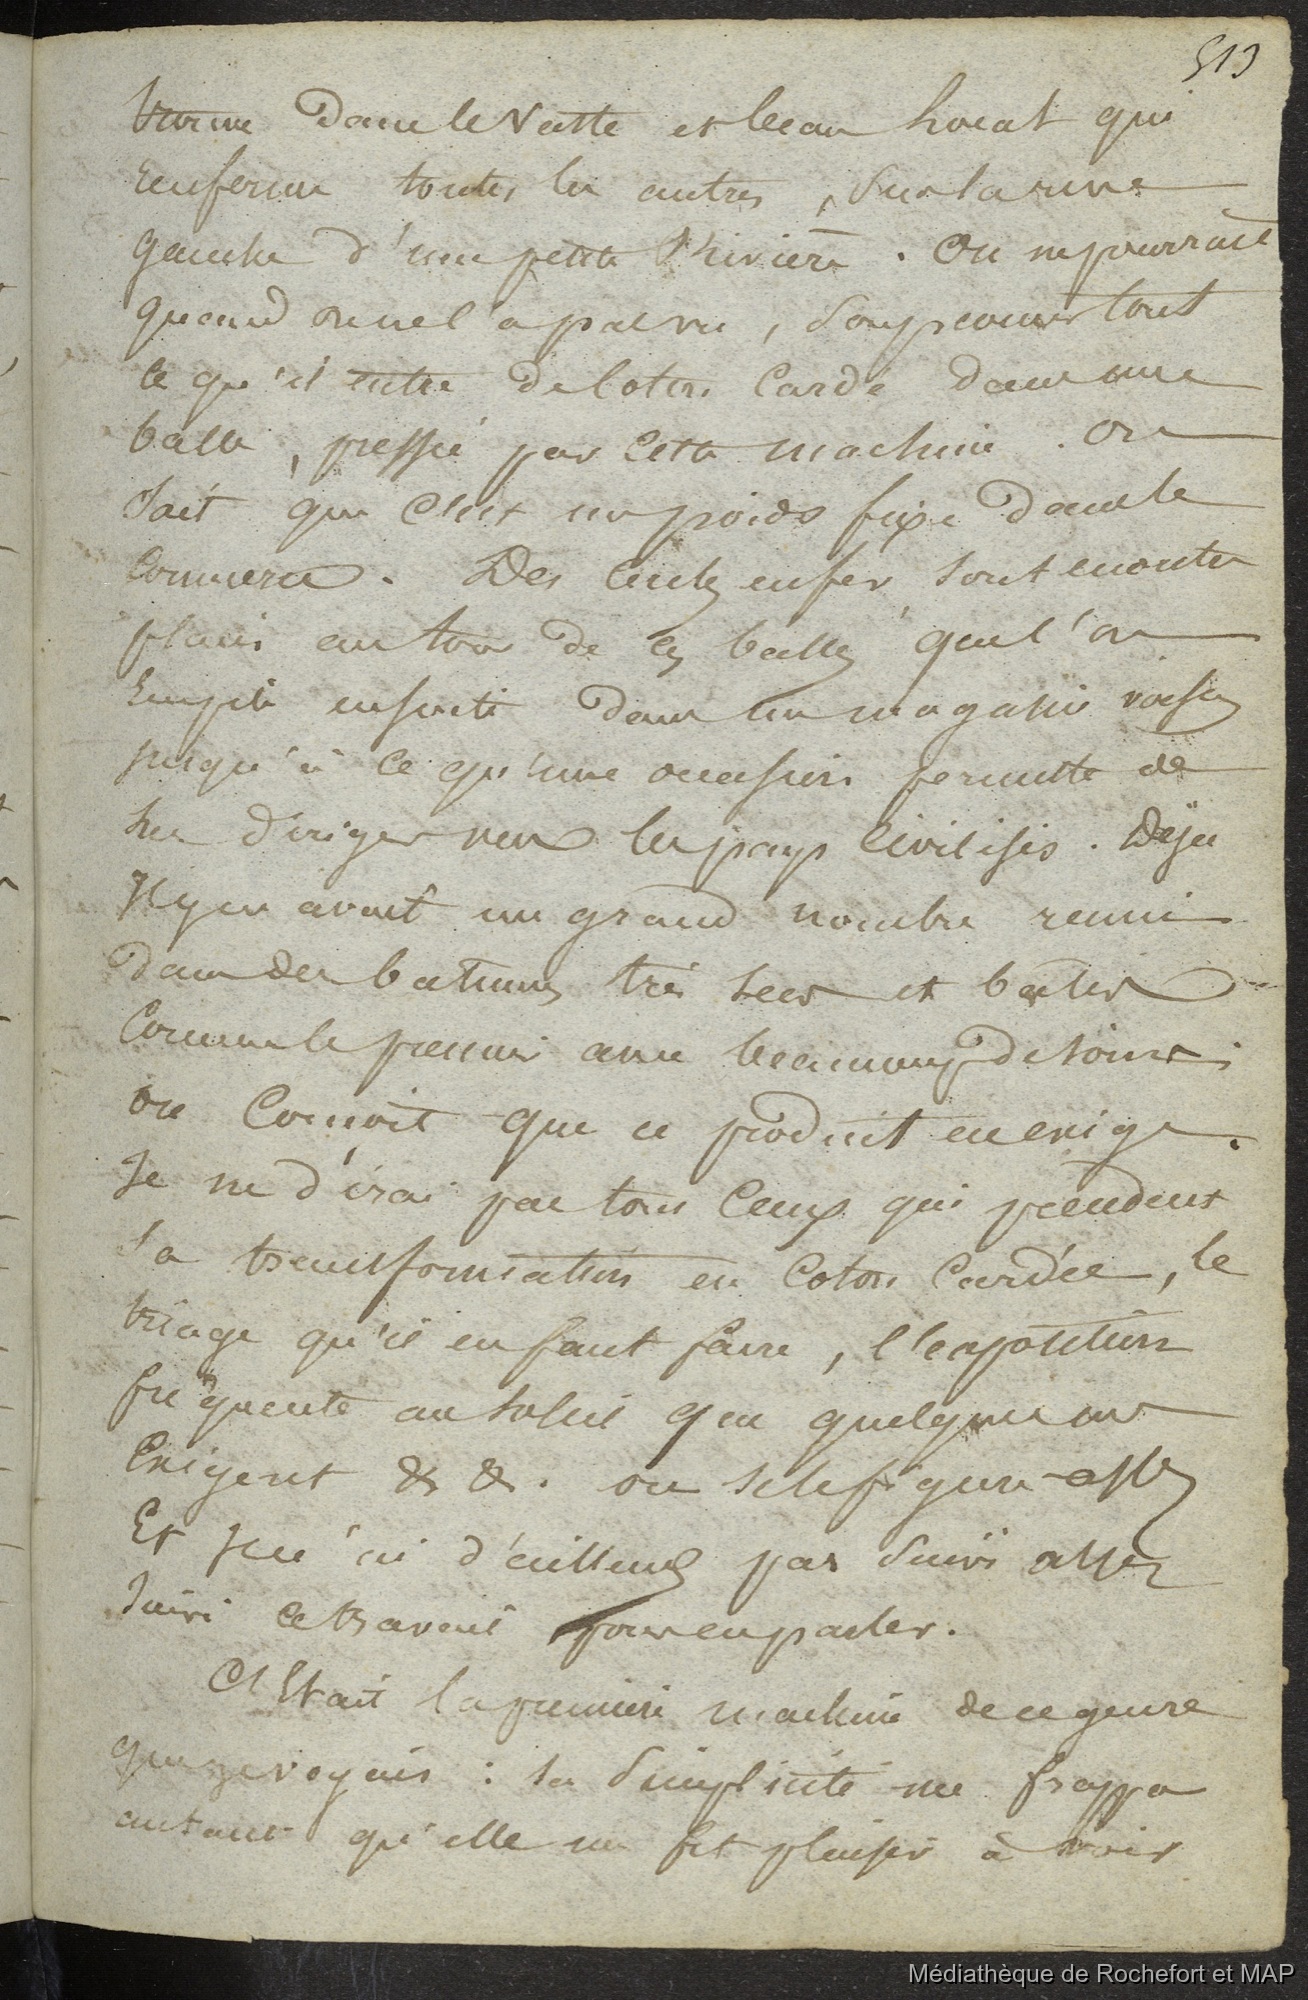 513
dans le vaste et beau local qui
renferme toutes les autres, sur la rive
gauche d'une petite Rivière. On ne pourrait
quand on ne l'a pas vu, soupconner tout
ce qu'il entre de Coton Cardé dans une
balle, pressée par Cette machine. On
sait que C'est un poids fixe dans le
Commerce. Des Cercles en fer sont ensuite
placés autour de ces balles que l'on
Empile ensuite dans un magasin voisin
jusqu'à ce qu'une occasion permette de
les diriger vers les pays Civilisés. Déja
Il y en avait un grand nombre reuni
dans des batimens très secs et batis
Comme le premier avec beaucoup de soins
on Connoit que ce produit en exige.
Je ne dirai pas tous Ceux qui precedent
sa transformation en Coton Cardée, le
triage qu'il en faut faire, l'exposition
fréquente au soleil que quelques uns
Exigent &c &c. on se le figure assez
Et je n'ai d'ailleurs pas suivi assez
suivi ce travail pour en parler.
C'Etait la premiere machine de ce genre
que je voyais : sa Simplicité me frappa
autant qu'elle me fit plaisir à voir
Médiathèque de Rochefort et MAP